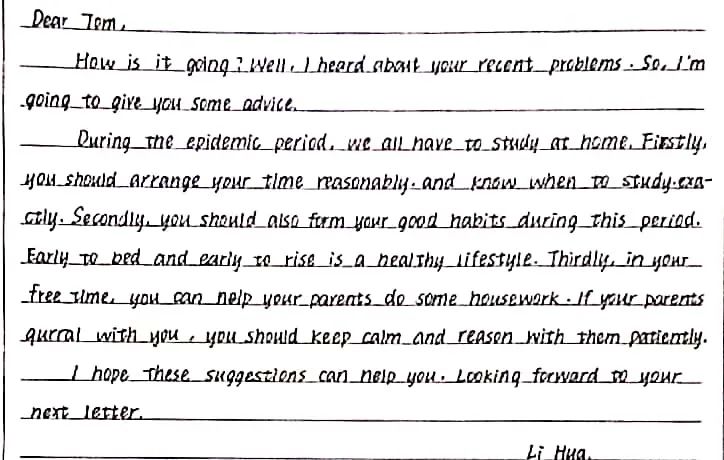 Dear Tom,
How is it going? Well, I heard about your recent problems. So, I'm
going to give you some advice.
During the epidemic period, we all have to study at home. Firstly,
you should arrange your time reasonably. and know when to study exa-
ctly. Secondly, you should also form your good habits during this period.
Early to bed and early to rise is a healthy lifestyle. Thirdly, in your
free time, you can help your parents do some housework. If your parents
qurral with you, you should keep calm and reason with them patiently.
I hope these suggestions can help you. Looking forward to your
next letter.
Li Hua.